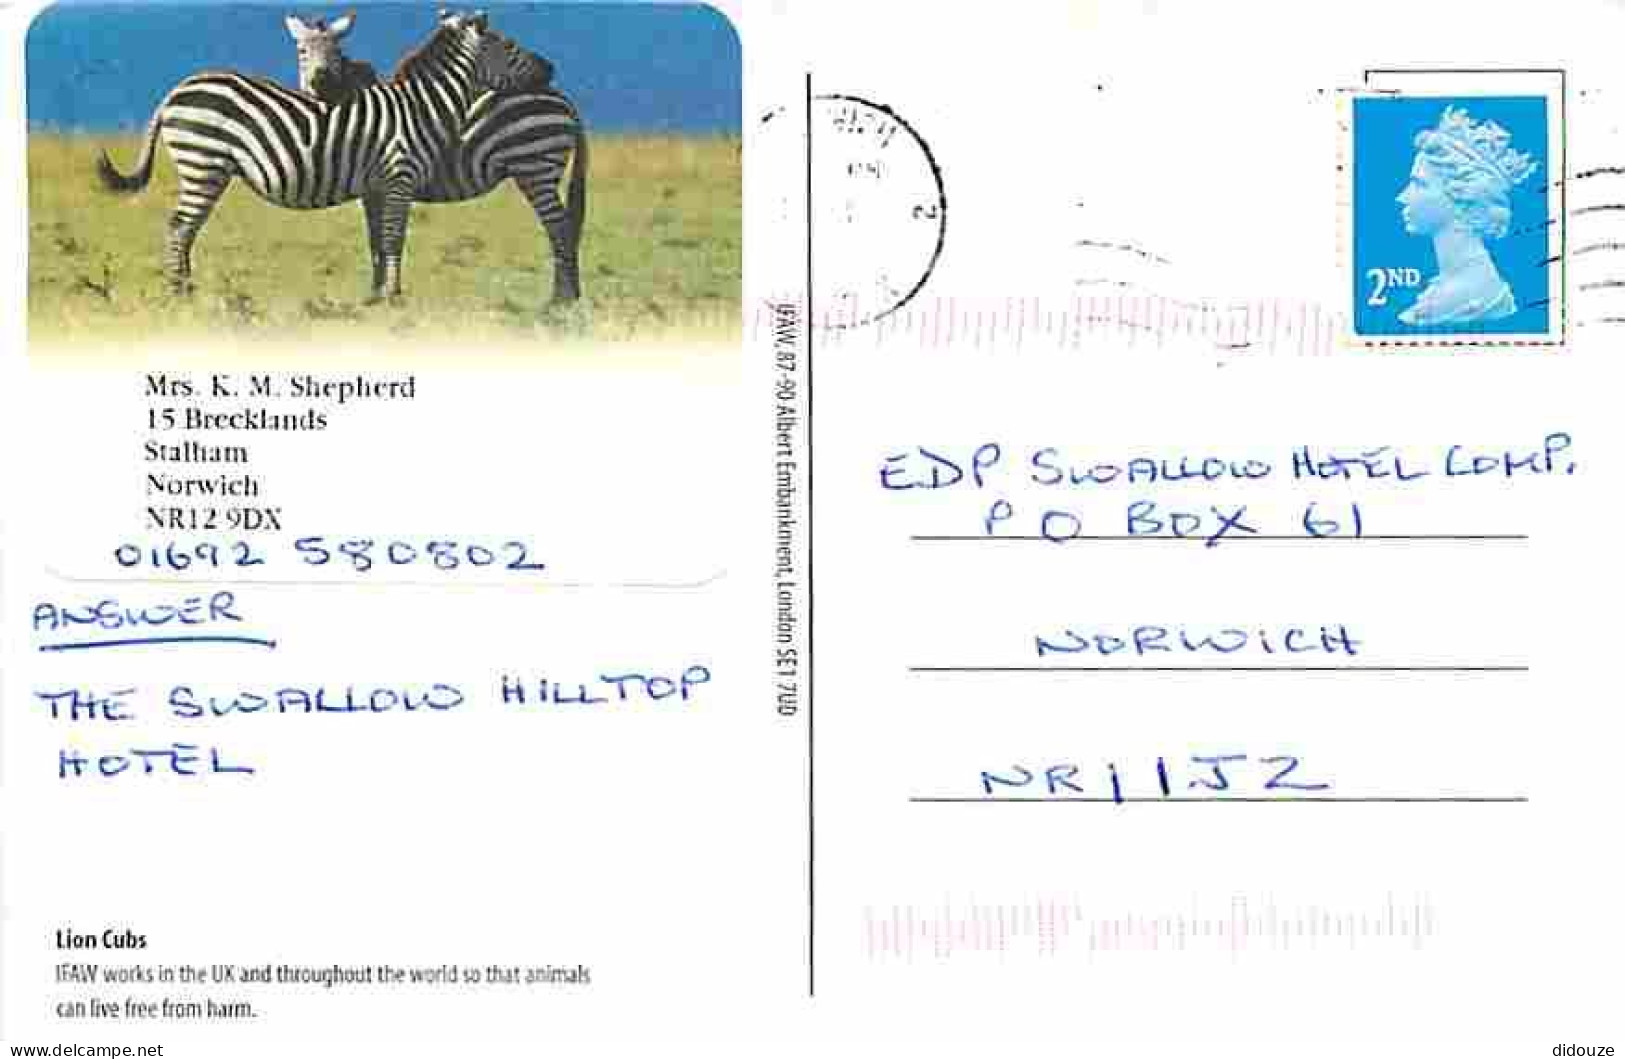 Mrs. K. M. Shepherd
15 Brecklands
Stalham
Norwich
NR12 9DX
01692 580802
ANSWER
THE SWALLOW HILLTOP
HOTEL
Lion Cubs
IFAW works in the UK and throughout the world so that animals
can live free from harm.
IFAW, 87-90 Albert Embankment, London SE1 7UD
2
2ND
EDP SWALLOW HOTEL COMP.
PO BOX 61
NORWICH
NR1 1JZ
www.delcampe.net
didouze